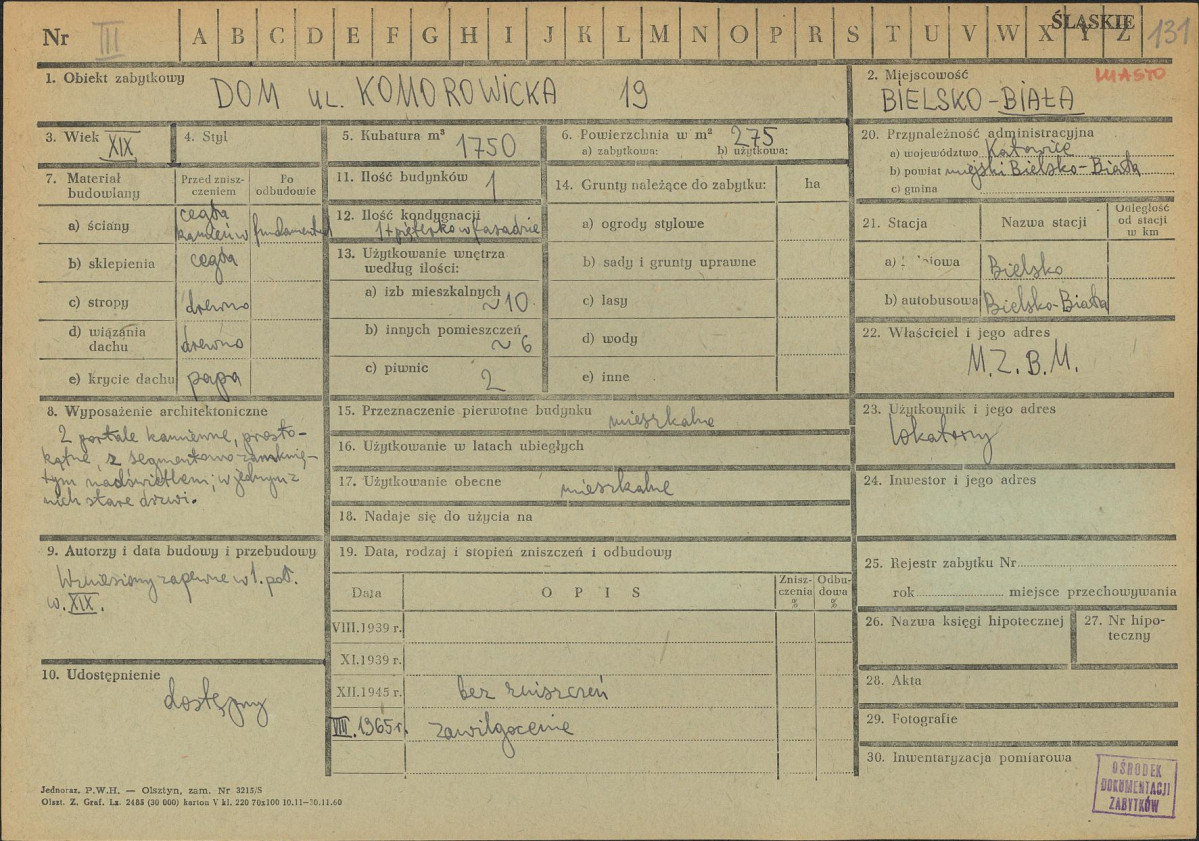 Nr III A B C D E F G H I J K L M N O P R S T U V W X Y Z ŚLĄSKIE 131
1. Obiekt zabytkowy
DOM UL. KOMOROWICKA 19
2. Miejscowość MIASTO
BIELSKO-BIAŁA
3. Wiek XIX
4. Styl
5. Kubatura m³ 1750
6. Powierzchnia w m² 275
a) zabytkowa: b) użytkowa:
7. Materiał budowlany
Przed zniszczeniem
Po odbudowie
a) ściany cegła kamień w fundamentach
b) sklepienia cegła
c) stropy drewno
d) wiązania dachu drewno
e) krycie dachu papa
8. Wyposażenie architektoniczne
2 portale kamienne, prosto-
kątne, z segmentowo zamknię-
tym nadświetlem; w jednym z
nich stare drzwi.
9. Autorzy i data budowy i przebudowy
Wzniesiony zapewne w 1. poł.
w. XIX.
10. Udostępnienie
dostępny
11. Ilość budynków 1
12. Ilość kondygnacji
1 + pięterko w fasadzie
13. Użytkowanie wnętrza
według ilości:
a) izb mieszkalnych
~10
b) innych pomieszczeń
~6
c) piwnic
2
14. Grunty należące do zabytku: ha
a) ogrody stylowe
b) sady i grunty uprawne
c) lasy
d) wody
e) inne
15. Przeznaczenie pierwotne budynku mieszkalne
16. Użytkowanie w latach ubiegłych
17. Użytkowanie obecne mieszkalne
18. Nadaje się do użycia na
19. Data, rodzaj i stopień zniszczeń i odbudowy
Data OPIS Zniszczenia % Odbudowa %
VIII.1939 r.
XI.1939 r.
XII.1945 r. bez zniszczeń
VIII.1965 r. zawilgocenie
20. Przynależność administracyjna
a) województwo Katowice
b) powiat miejski Bielsko-Biała
c) gmina
21. Stacja Nazwa stacji Odległość od stacji w km
a) Bielsko
b) autobusowa Bielsko-Biała
22. Właściciel i jego adres
M.Z.B.M.
23. Użytkownik i jego adres
lokatorzy
24. Inwestor i jego adres
25. Rejestr zabytku Nr
rok miejsce przechowywania
26. Nazwa księgi hipotecznej
27. Nr hipo-
teczny
28. Akta
29. Fotografie
30. Inwentaryzacja pomiarowa
OŚRODEK
DOKUMENTACJI
ZABYTKÓW
Jednoraz. P.W.H. — Olsztyn, zam. Nr 3215/S
Olszt. Z. Graf. Lz. 2485 (30 000) karton V kl. 220 70x100 10.11—30.11.60